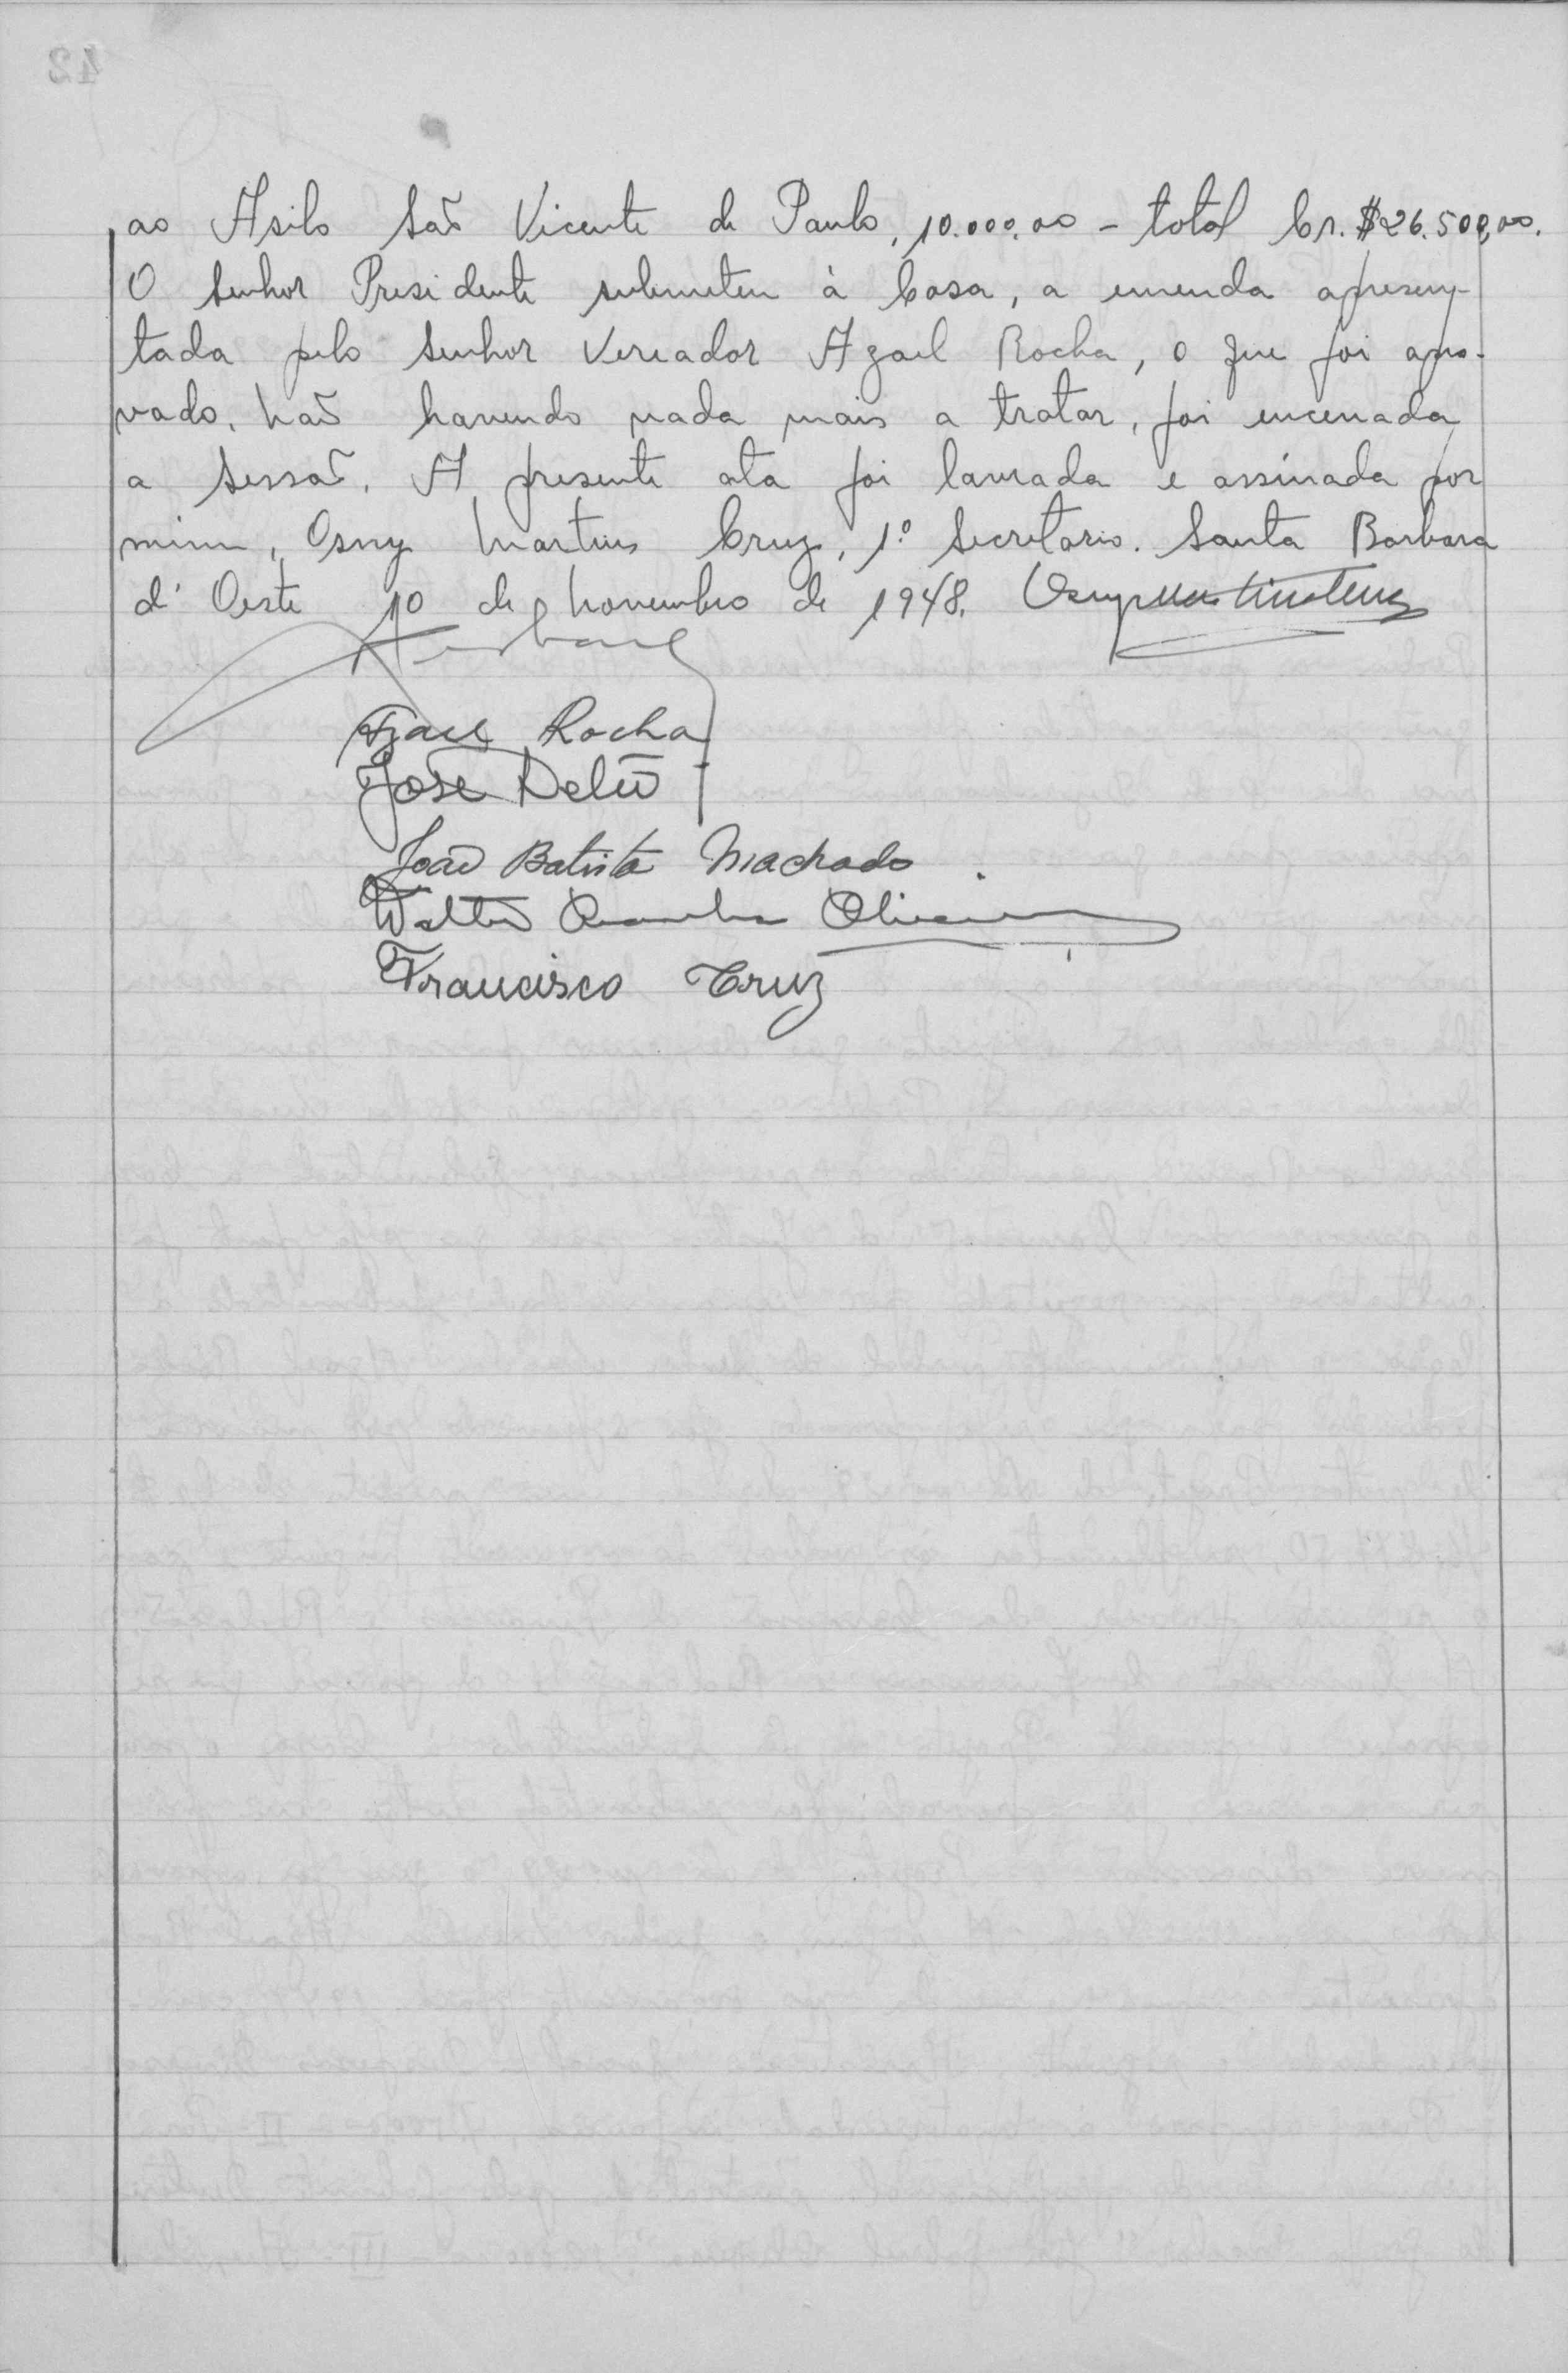 ao Asilo São Vicente de Paulo, 10.000,00 - total Cr.$26.500,00.
O Senhor Presidente submeteu à Casa, a emenda apresen-
tada pelo Senhor Vereador Azael Rocha, o que foi apro-
vado. Não havendo nada mais a tratar, foi encerrada
a Sessão. A presente ata foi lavrada e assinada por
mim, Osny Martins Cruz, 1º Secretario. Santa Barbara
d'Oeste 10 de Novembro de 1948.
Azael Rocha
José
João Batista Machado.
Walter Oliveira
Francisco Cruz